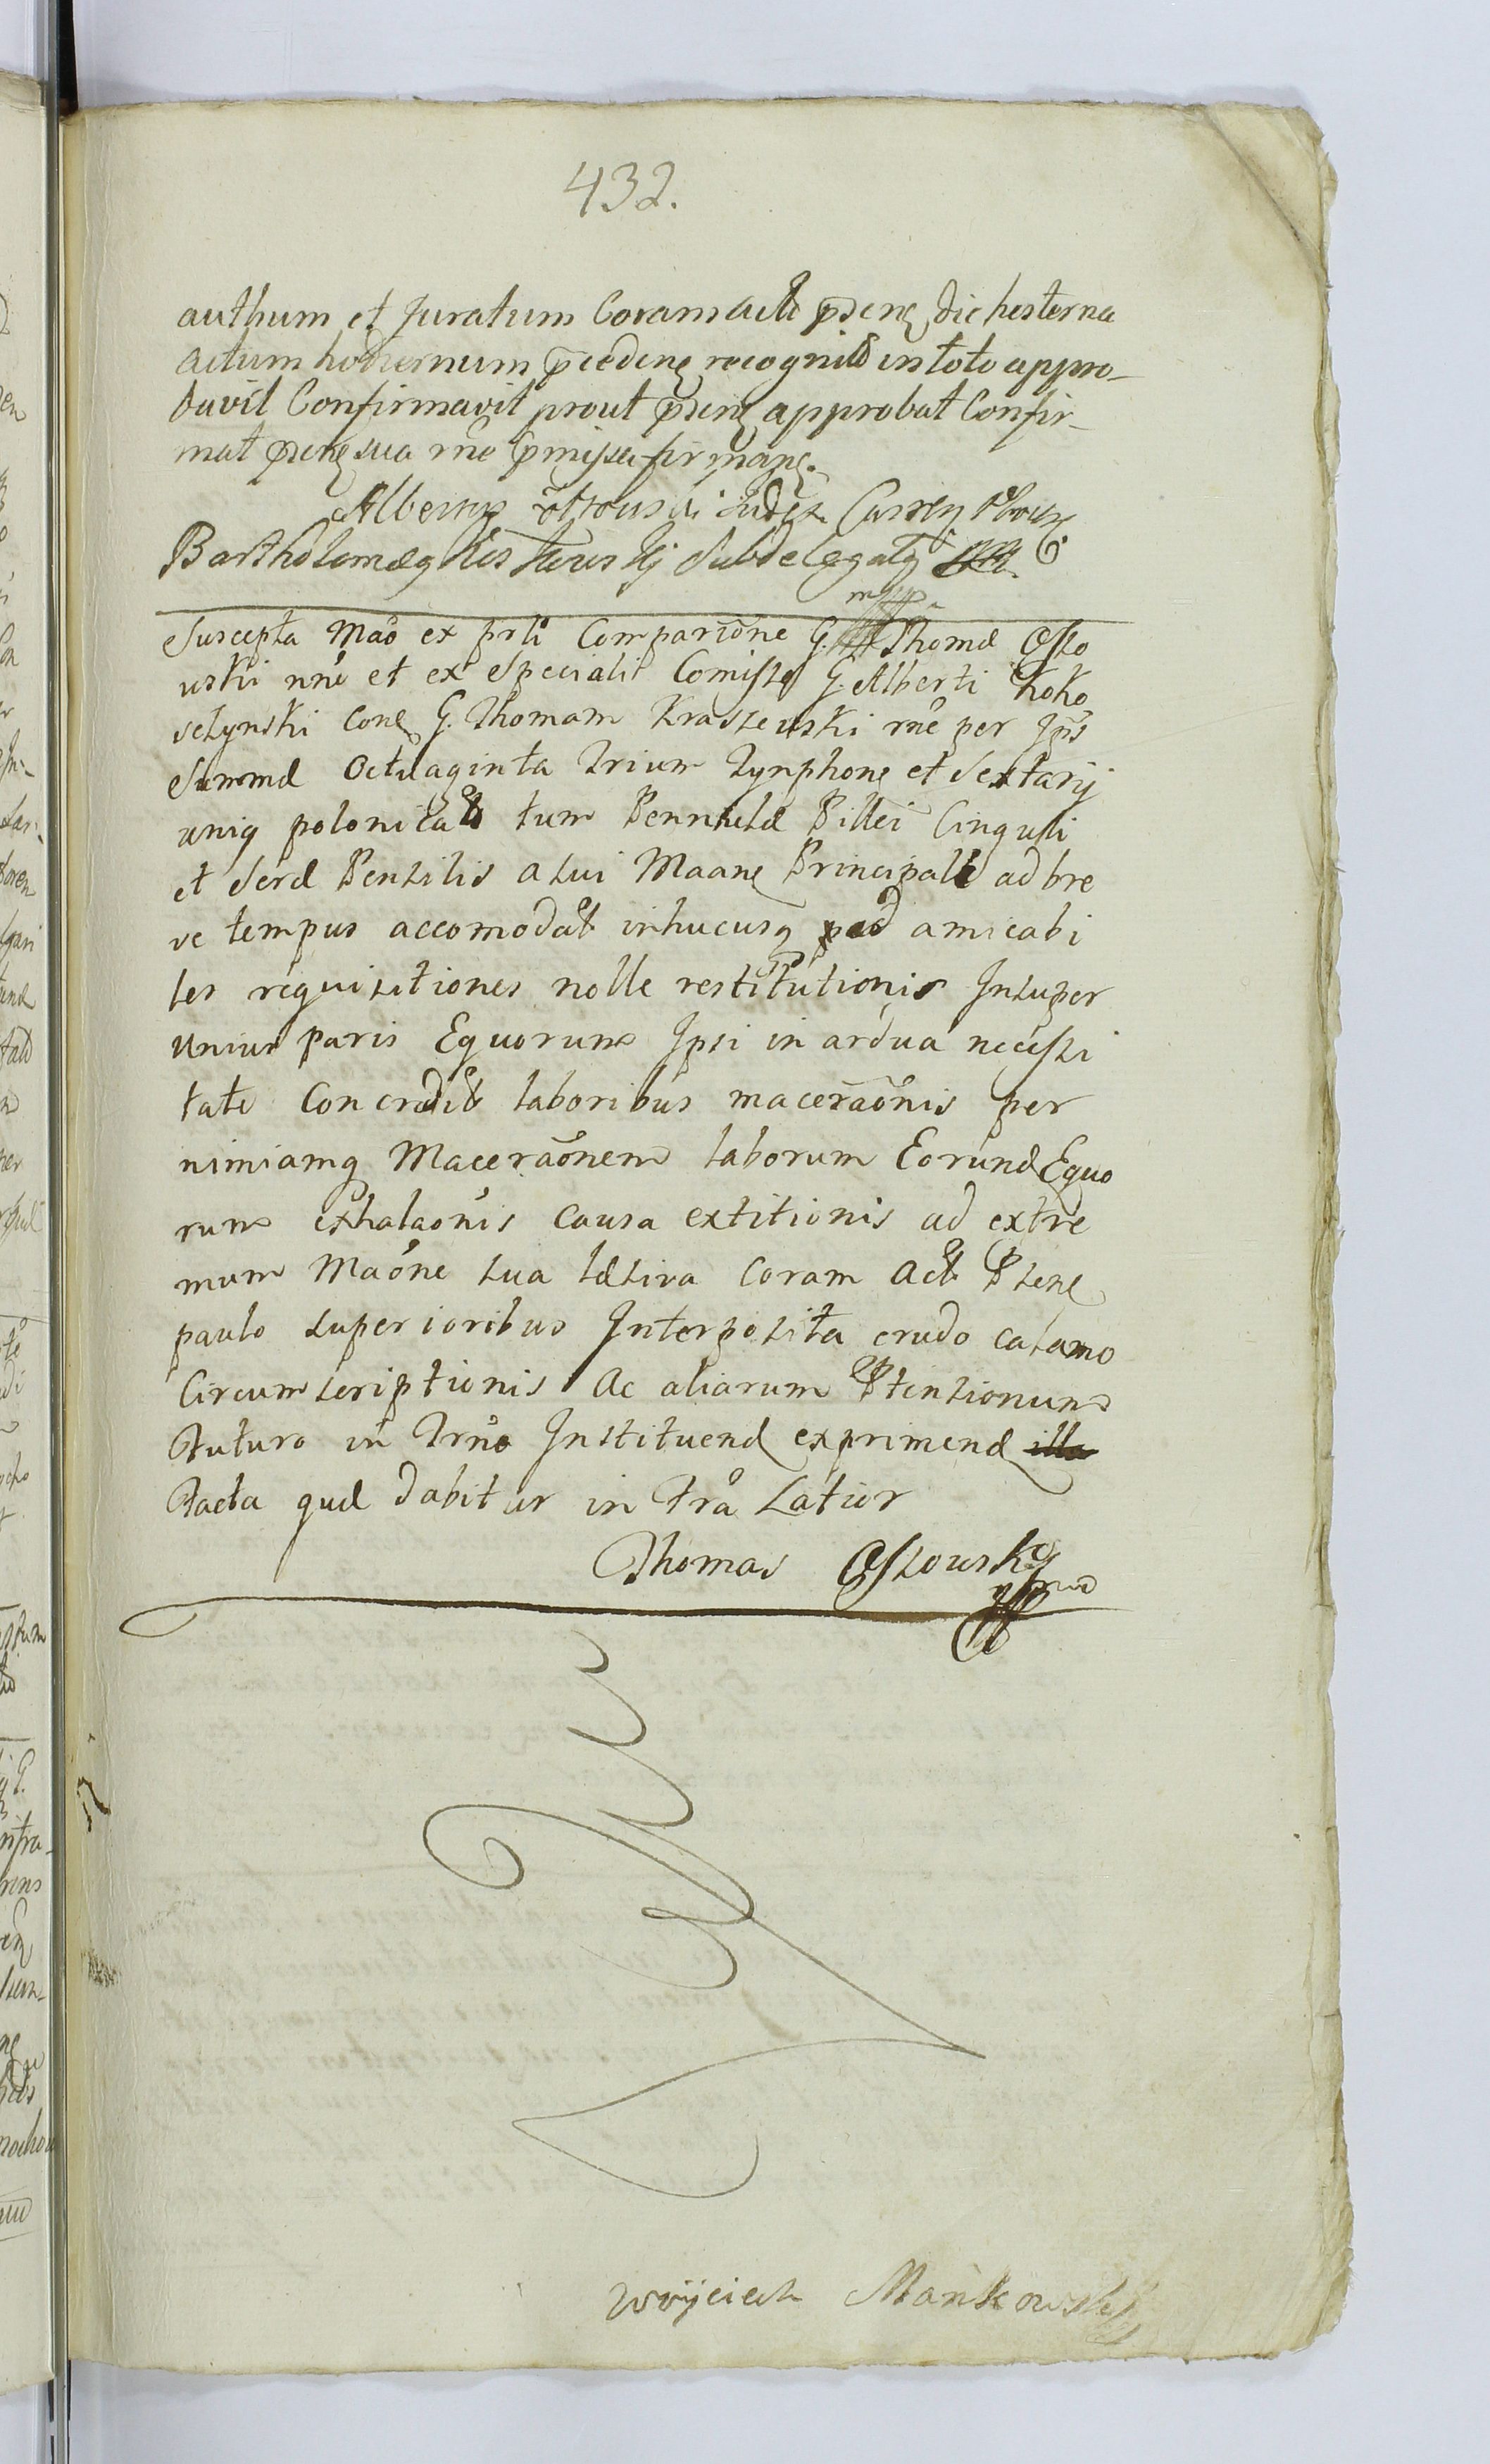 432.
authum et Juratum Coram actis pñtibg die hesterna
actum hodiernum p̃cedeng recognitis in toto appro-
bavit Confirmavit prout p̃seng approbat Confir-
mat p̃seng sua mẽ p̃missa firmang.
Albertus Judex
Bartholomæg Subdelegatg
mpp
Suscepta Mão ex prti Comparione G. Thomæ Osso
uski nñe et ex Speciali Comisso G. Alberti Koko
selynski cong G. Thomam Kraszewski rñe per Jps
Summæ Octuaginta Trium Tynphong et Sextarij
unig polonical tum Pennulæ Pillei Cinguli
et Seræ Pensilis a sui Maang Principali ad bre
ve tempus accomodat inhucusq ad amicabi
les requisitiones nolle restitutionis Insuper
unius paris Equorum Ipsi in ardua necessi
tate Concredit laboribus maceraõnis per
nimiamq Maceraõnem laborum Eorund Equo
rum exhalaõnis causa extitionis ad extre
mum Maõne sua læsiva Coram Act Pseng
paulo superioribus Interposita crudo calamo
Circumscriptionis Ac aliarum Ptensionum
Futuro in Trño Instituend exprimend
Facta quæ dabitur in Fra Latior
Thomas Ossowski
mpp
Woyciech Mankowski